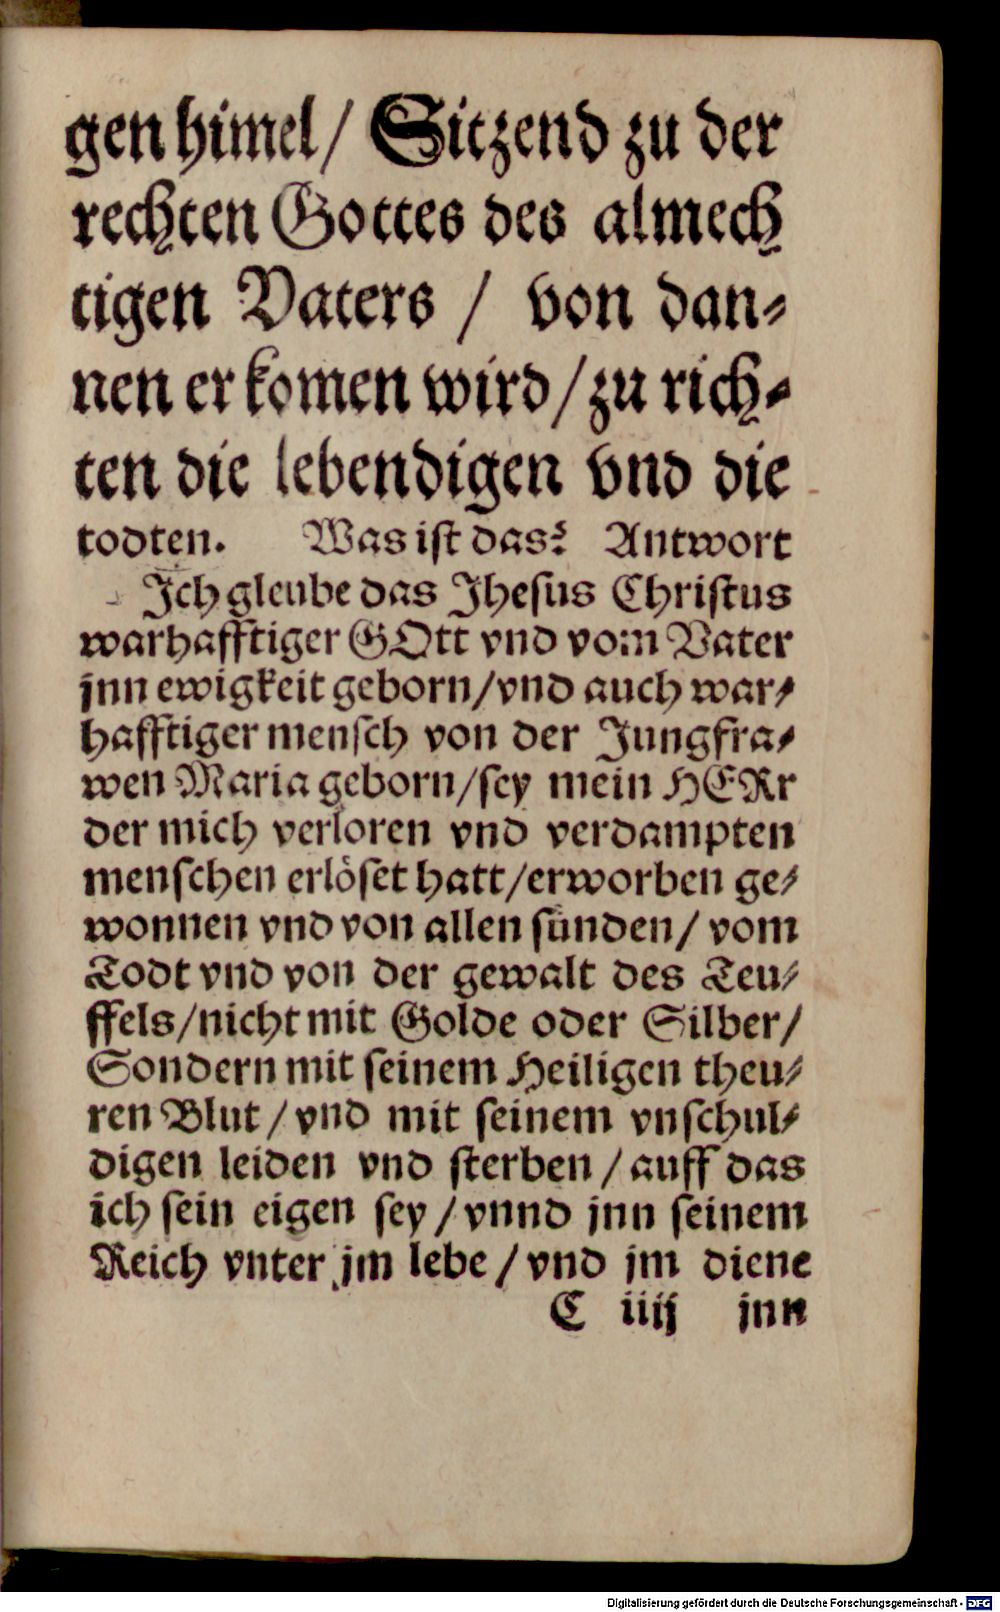 gen himel / Sitzend zu der
rechten Gottes des almech
tigen Vaters / von dan-
nen er komen wird / zu rich-
ten die lebendigen vnd die
todten. Was ist das? Antwort
Ich gleube das Jhesus Christus
warhafftiger GOtt vnd vom Vater
jnn ewigkeit geborn / vnd auch war-
hafftiger mensch von der Jungfra-
wen Maria geborn / sey mein HERr
der mich verloren vnd verdampten
menschen erlöset hatt / erworben ge-
wonnen vnd von allen sünden / vom
Todt vnd von der gewalt des Teu-
ffels / nicht mit Golde oder Silber /
Sondern mit seinem Heiligen theu-
ren Blut / vnd mit seinem vnschul-
digen leiden vnd sterben / auff das
ich sein eigen sey / vnnd jnn seinem
Reich vnter jm lebe / vnd jm diene
C iiij jnn
Digitalisierung gefördert durch die Deutsche Forschungsgemeinschaft - DFG